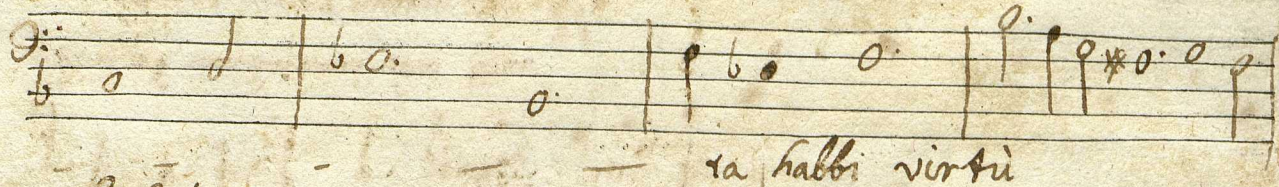 ra halbi virtù